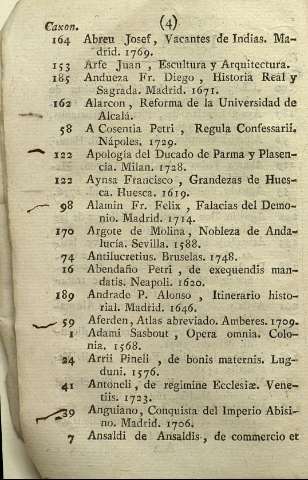 Caxon. (4)
164 Abreu Josef, Vacantes de Indias. Ma-
drid. 1769.
153 Arfe Juan, Escultura y Arquitectura.
185 Andueza Fr. Diego, Historia Real y
Sagrada. Madrid. 1671.
162 Alarcon, Reforma de la Universidad de
Alcalá.
58 A Cosentia Petri, Regula Confessarii,
Nápoles. 1729.
122 Apología del Ducado de Parma y Plasen-
cia. Milan. 1728.
122 Aynsa Francisco, Grandezas de Hues-
ca. Huesca. 1619.
98 Alamin Fr. Felix, Falacias del Demo-
nio. Madrid. 1714.
170 Argote de Molina, Nobleza de Anda-
lucía. Sevilla. 1588.
74 Antilucretius. Bruselas. 1748.
16 Abendaño Petri, de exequendis man-
datis. Neapoli. 1620.
189 Andrade P. Alonso, Itinerario histo-
rial. Madrid. 1646.
59 Aferden, Atlas abreviado. Amberes. 1709.
1 Adami Sasbout, Opera omnia. Colo-
nia. 1568.
24 Arrii Pineli, de bonis maternis. Lug-
duni. 1576.
41 Antoneli, de regimine Ecclesiæ. Vene-
tiis. 1723.
39 Anguiano, Conquista del Imperio Abisi-
no. Madrid. 1706.
7 Ansaldi de Ansaldis, de commercio et